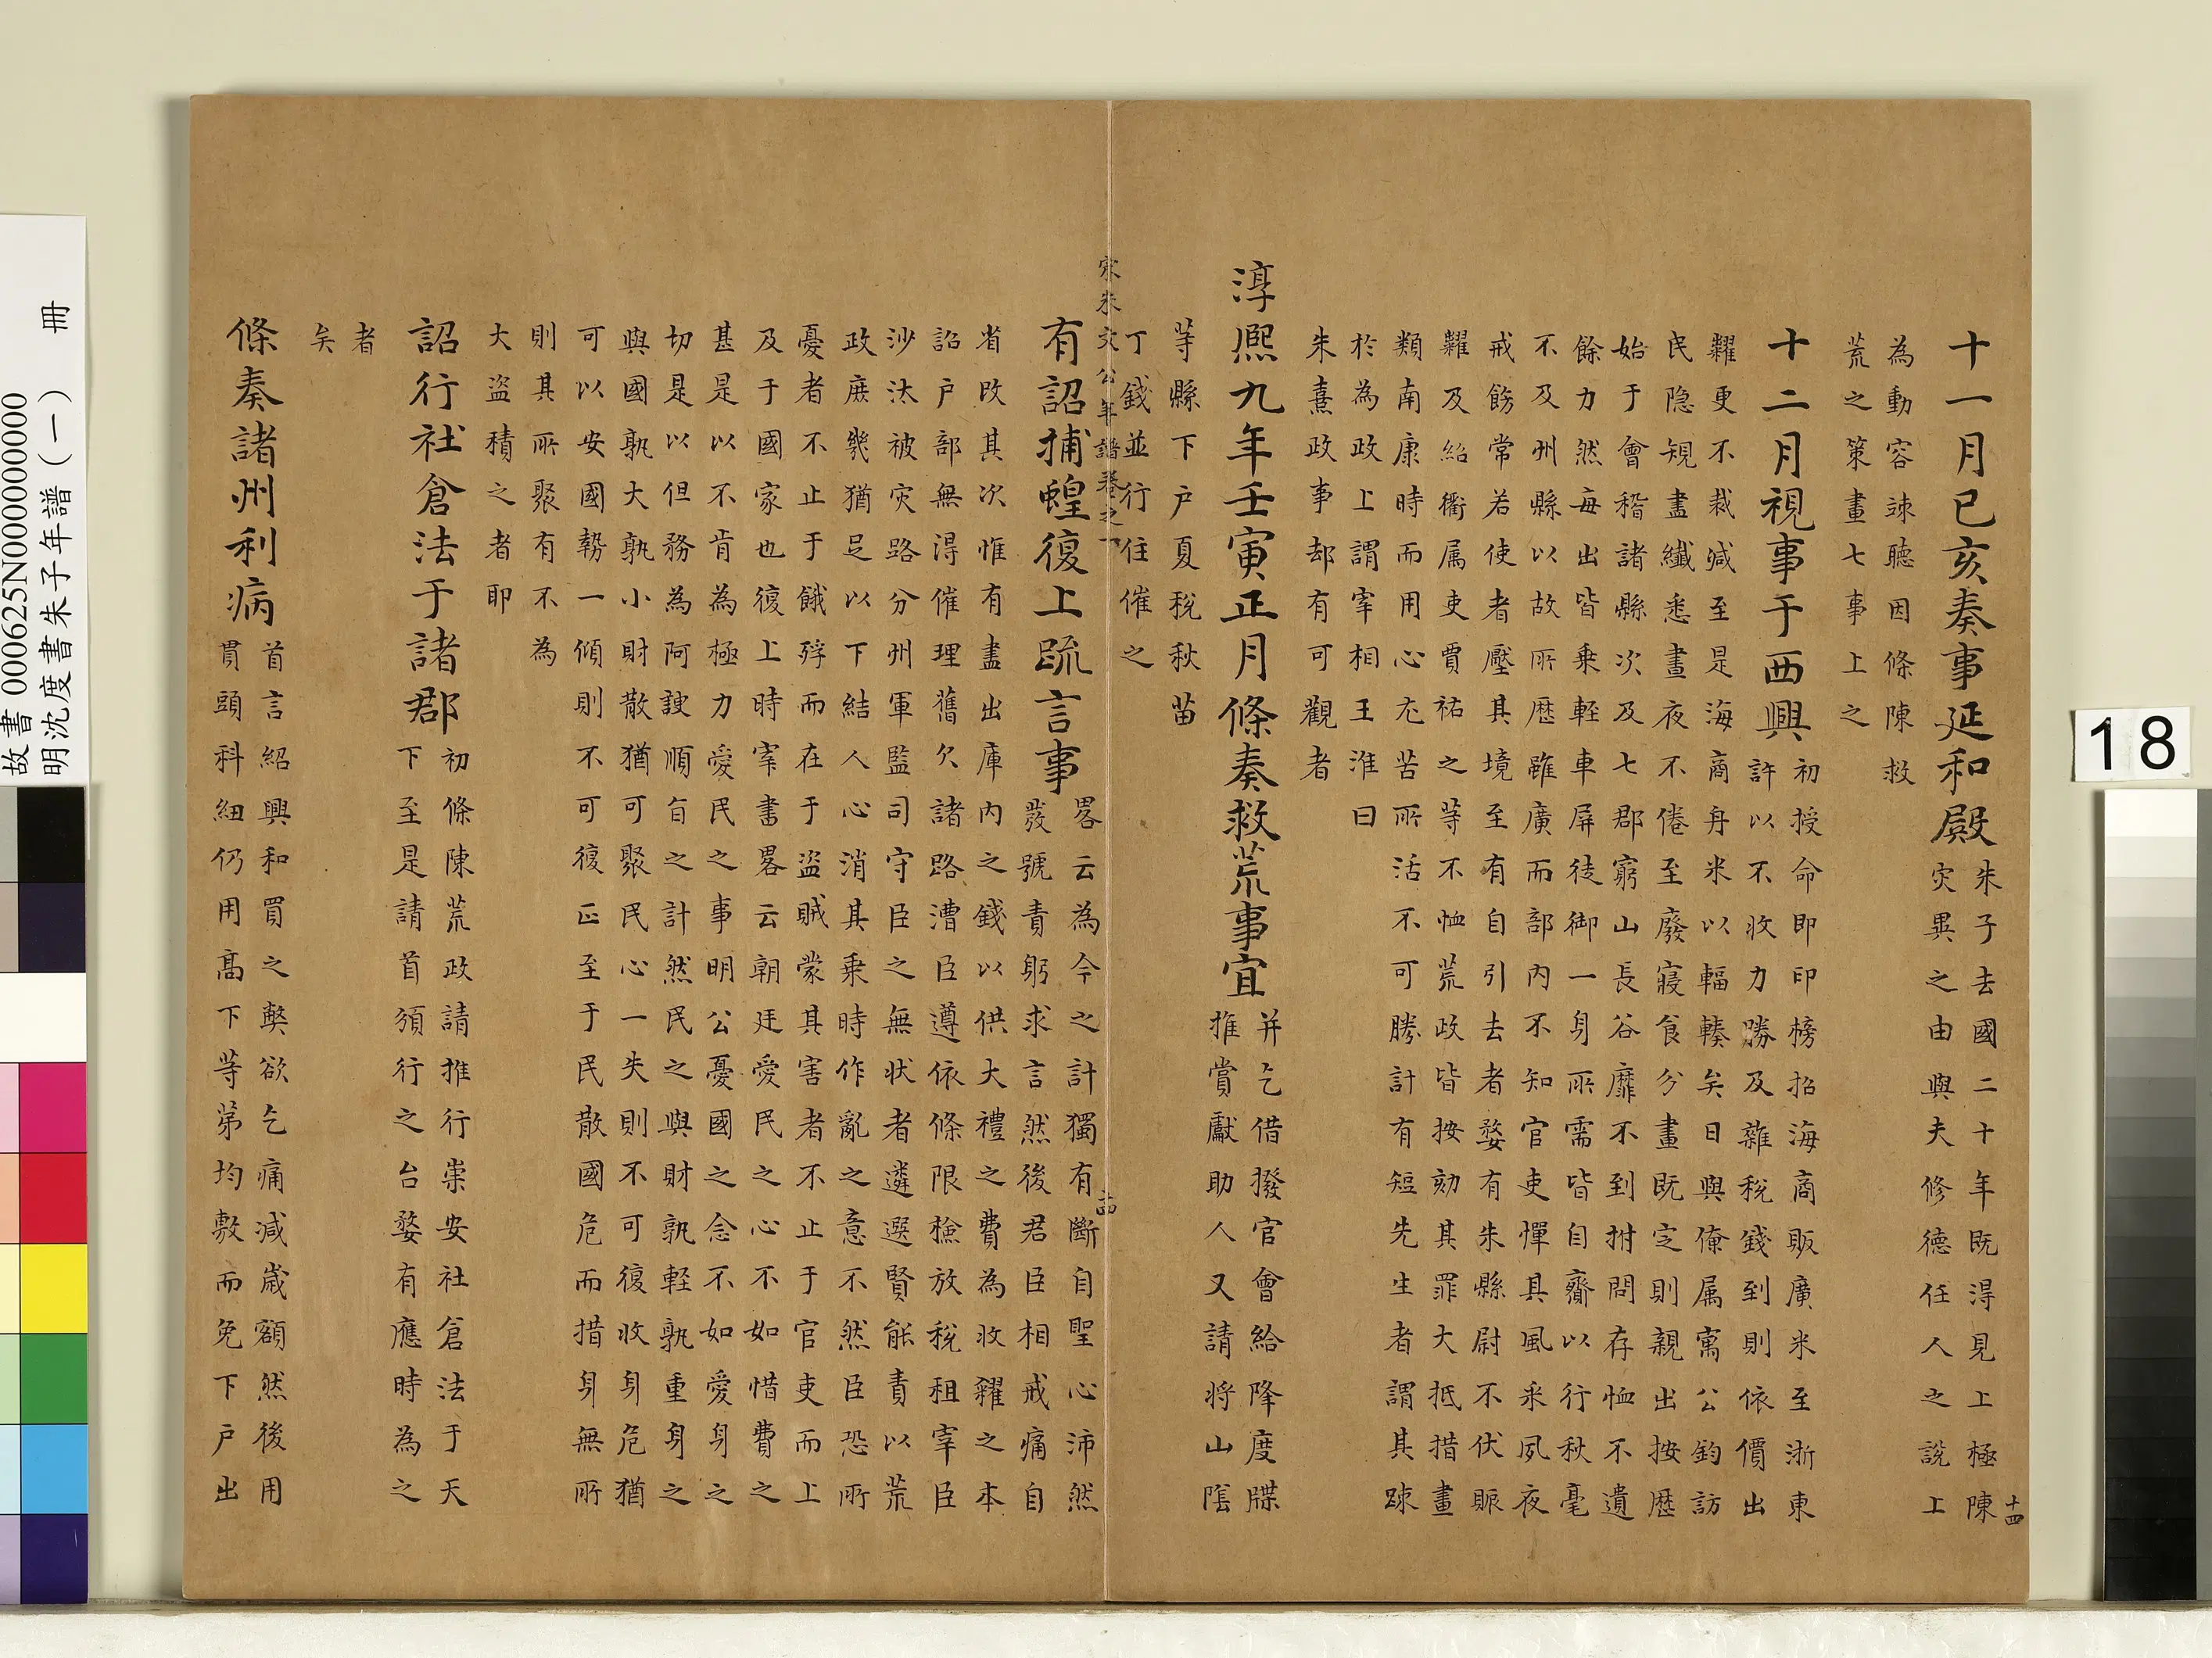 十一月已亥奏事延和殿
朱子去國二十年既淂見上極陳
灾異之由與夫修德任人之說上
為動容竦聽因條陳救
荒之策畫七事上之
十二月視事于西興
初授命即印榜招海商販廣米至浙東
許以不收力勝及雜稅錢到則依價出
糶更不裁減至是海商舟米以輻輳矣日與僚属寓公鈞訪
民隐規畫纖悉晝夜不倦至廢寢食分畫既定則親出按歷
始于會稽諸縣次及七郡窮山長谷靡不到拊問存恤不遺
餘力然每出皆乗輕車屏徒御一身所需皆自齎以行秋毫
不及州縣以故所歷雖廣而部內不知官吏憚其風采夙夜
戒飭常若使者壓其境至有自引去者婺有朱縣尉不伏賑
糶及紹衢属吏賈祐之等不恤荒政皆按劾其罪大抵措畫
類南康時而用心尤苦所活不可勝計有短先生者謂其踈
於為政上謂宰相王淮曰
朱熹政事却有可觀者
淳熈九年壬寅正月條奏救荒事宜
并乞借撥官會給降度牒
推賞獻助人又請将山陰
等縣下户夏稅秋苗
丁錢並行住催之
宋朱文公年譜卷之一
十四
有詔捕蝗復上疏言事
畧云為今之計獨有斷自聖心沛然
發號責躬求言然後君臣相戒痛自
省改其次惟有盡出庫内之錢以供大禮之費為收糴之本
詔户部無淂催理舊欠諸路漕臣遵依條限檢放稅租宰臣
沙汰被灾路分州軍監司守臣之無状者遴選賢能責以荒
政庶㡬猶足以下結人心消其乗時作亂之意不然臣恐所
憂者不止于餓殍而在于盜賊蒙其害者不止于官吏而上
及于國家也復上時宰書畧云朝廷愛民之心不如惜費之
甚是以不肯為極力愛民之事明公憂國之念不如愛身之
切是以但務為阿諛順㫖之計然民之與財孰軽孰重身之
與國孰大孰小財散猶可聚民心一失則不可復收身危猶
可以安國勢一傾則不可復正至于民散國危而措身無所
則其所聚有不為
大盜積之者耶
詔行社倉法于諸郡
初條陳荒政請推行崇安社倉法于天
下至是請首頒行之台婺有應時為之
者
矣
條奏諸州利病
首言紹興和買之弊欲乞痛減嵗額然後用
貫頭科紐仍用髙下等第均敷而免下户出
十四
18
故書 000625N000000000
明沈度書朱子年譜（一） 冊